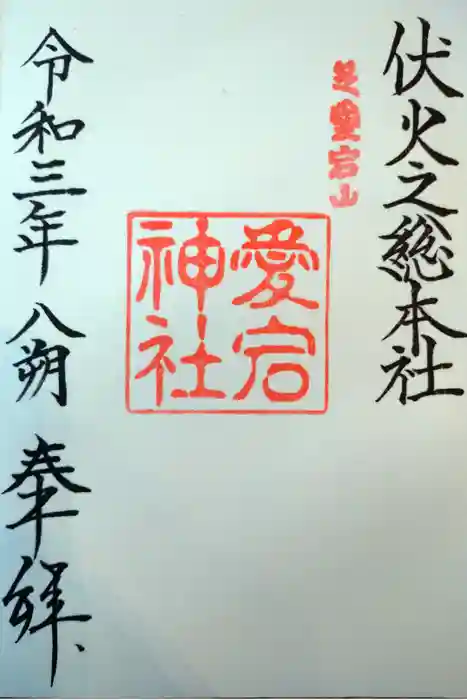 伏火之総本社
芝愛宕山
愛宕
神社
令和三年八朔奉拝